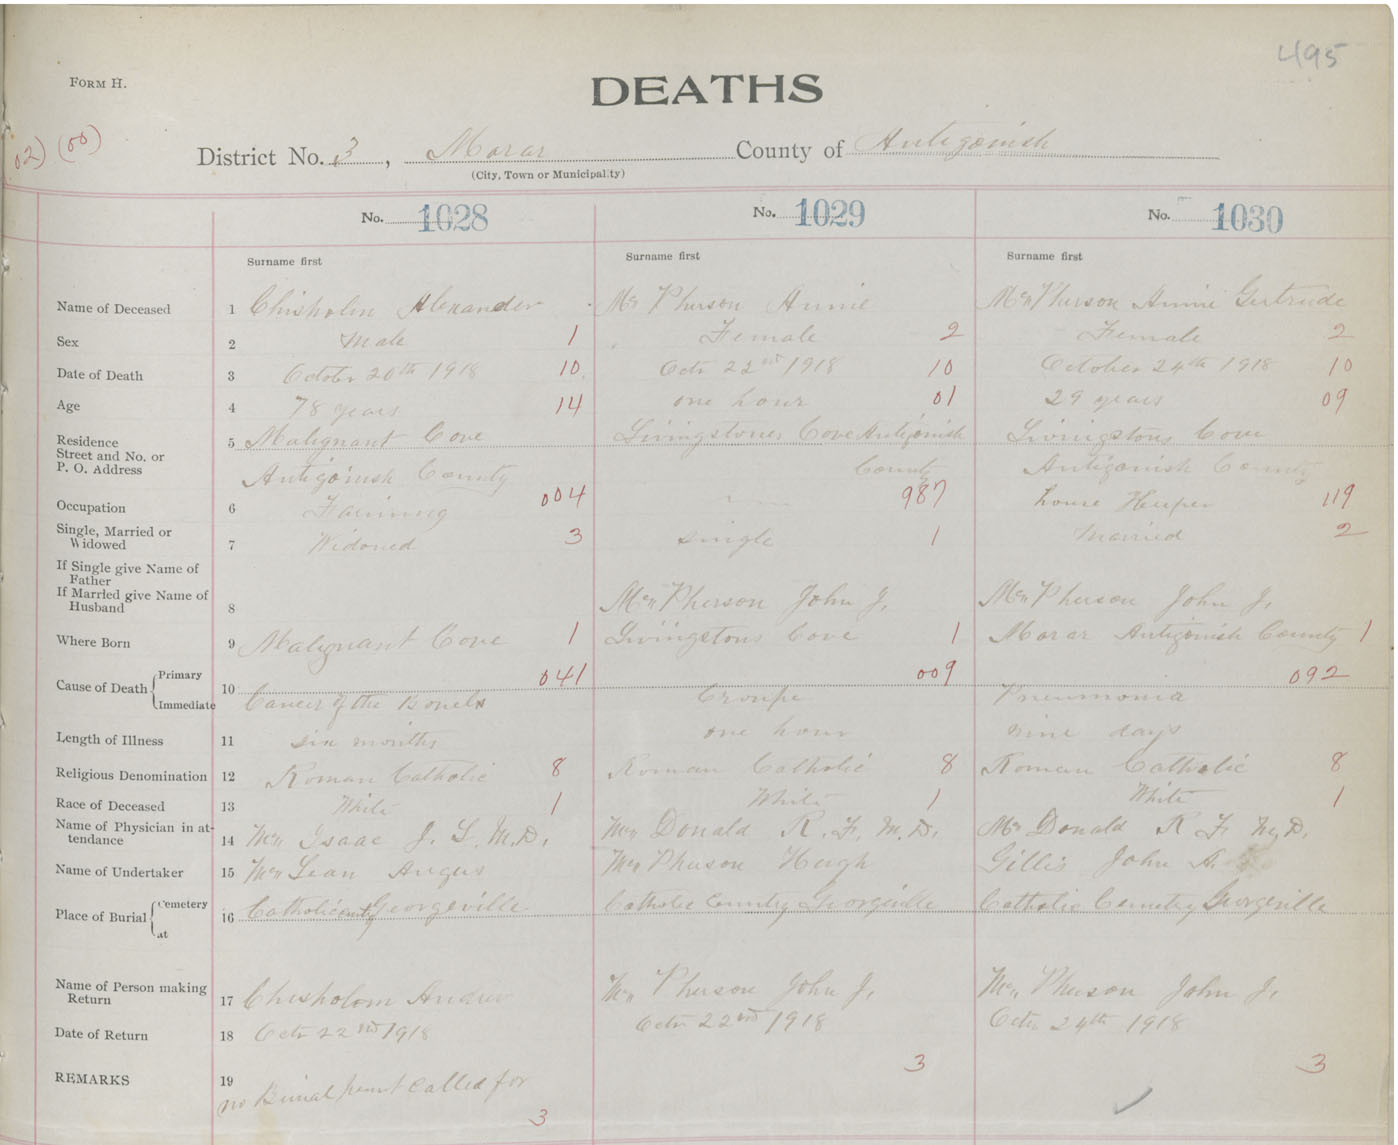 495
FORM H.
DEATHS
02) (00)
District No. 3, Morar County of Antigonish
(City, Town or Municipality)
No. 1028 No. 1029 No. 1030
Surname first Surname first Surname first
Name of Deceased 1 Chisholm Alexander McPherson Annie McPherson Annie Gertrude
Sex 2 Male 1 Female 2 Female 2
Date of Death 3 October 20th 1918 10 Octr 22nd 1918 10 October 24th 1918 10
Age 4 78 years 14 one hour 01 29 years 09
Residence 5 Malignant Cove Livingstones Cove Antigonish Livingstons Cove
Street and No. or
P. O. Address Antigonish County County Antigonish County
Occupation 6 Farming 004 987 house Keeper 119
Single, Married or
Widowed 7 Widowed 3 single 1 Married 2
If Single give Name of
Father
If Married give Name of
Husband 8 McPherson John J. McPherson John J.
Where Born 9 Malignant Cove 1 Livingstons Cove 1 Morar Antigonish County 1
Cause of Death Primary 041 009 092
Immediate 10 Cancer of the Bowels Croupe Pneumonia
Length of Illness 11 six months one hour nine days
Religious Denomination 12 Roman Catholic 8 Roman Catholic 8 Roman Catholic 8
Race of Deceased 13 White 1 White 1 White 1
Name of Physician in at-
tendance 14 Mc Isaac J. L. M.D. McDonald R. F. M.D. McDonald R F M.D.
Name of Undertaker 15 McLean Angus McPherson Hugh Gillis John A.
Place of Burial Cemetery 16 Catholic Georgeville Catholic Georgeville Catholic Cemetry Georgeville
at
Name of Person making
Return 17 Chisholom Andrew McPherson John J. McPherson John J.
Date of Return 18 Octr 22nd 1918 Octr 22nd 1918 Octr 24th 1918
3 3
REMARKS 19 no Burial permit called for
3